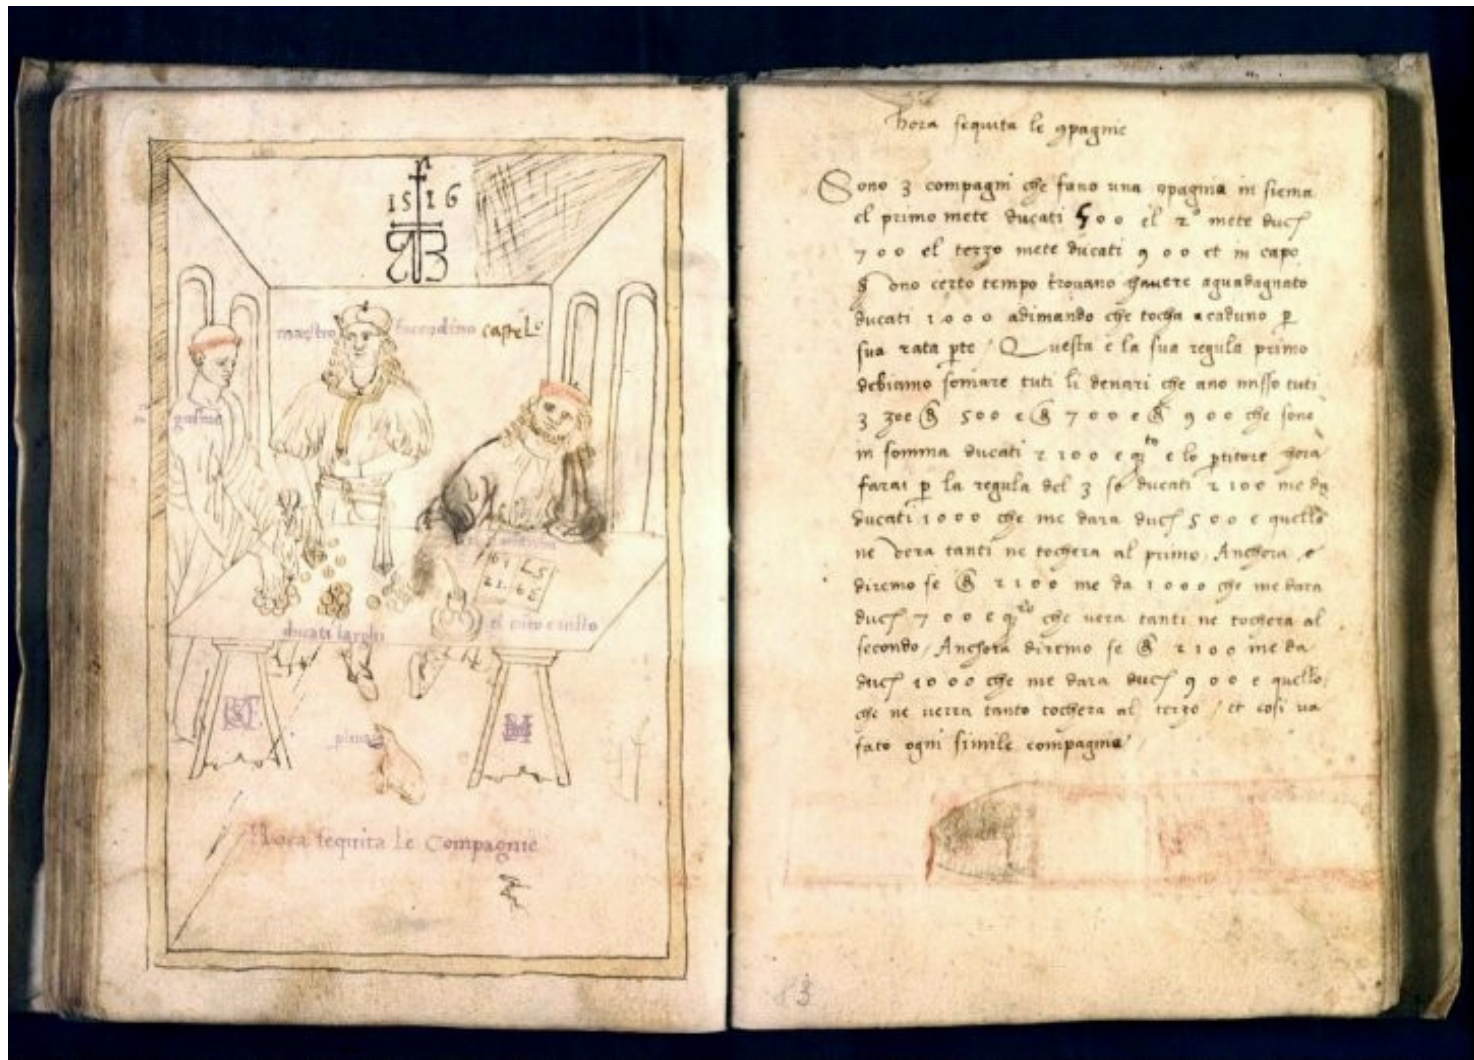 1516
maestro secondino capelo
ducati larghi
Hora sequita le Compagnie
hora sequita le 9pagnie
Sono 3 compagni che fano una 9pagnia in siema
el primo mete ducati 500 el 2º mete duc
700 el terzo mete ducati 900 et in capo
dono certo tempo trovano havere aguadagnato
ducati 1000 adimando che tocha a caduno p
sua rata pte / Questa e la sua regula primo
debiamo somare tuti li denari che ano misso tuti
3 zoe 500 e 700 e 900 che sono
in somma ducati 2100 e qto e lo ptitore hora
farai p la regula del 3 se ducati 2100 me da
ducati 1000 che me dara duc 500 e quello
ne vera tanti ne tochera al primo. Anchora
diremo se 2100 me da 1000 che me dara
duc 700 e che vera tanti ne tochera al
secondo / Anchora diremo se 2100 me da
duc 1000 che me dara duc 900 e quello
che ne verra tanto tochera al terzo / et cosi va
fato ogni simile compagnia
83